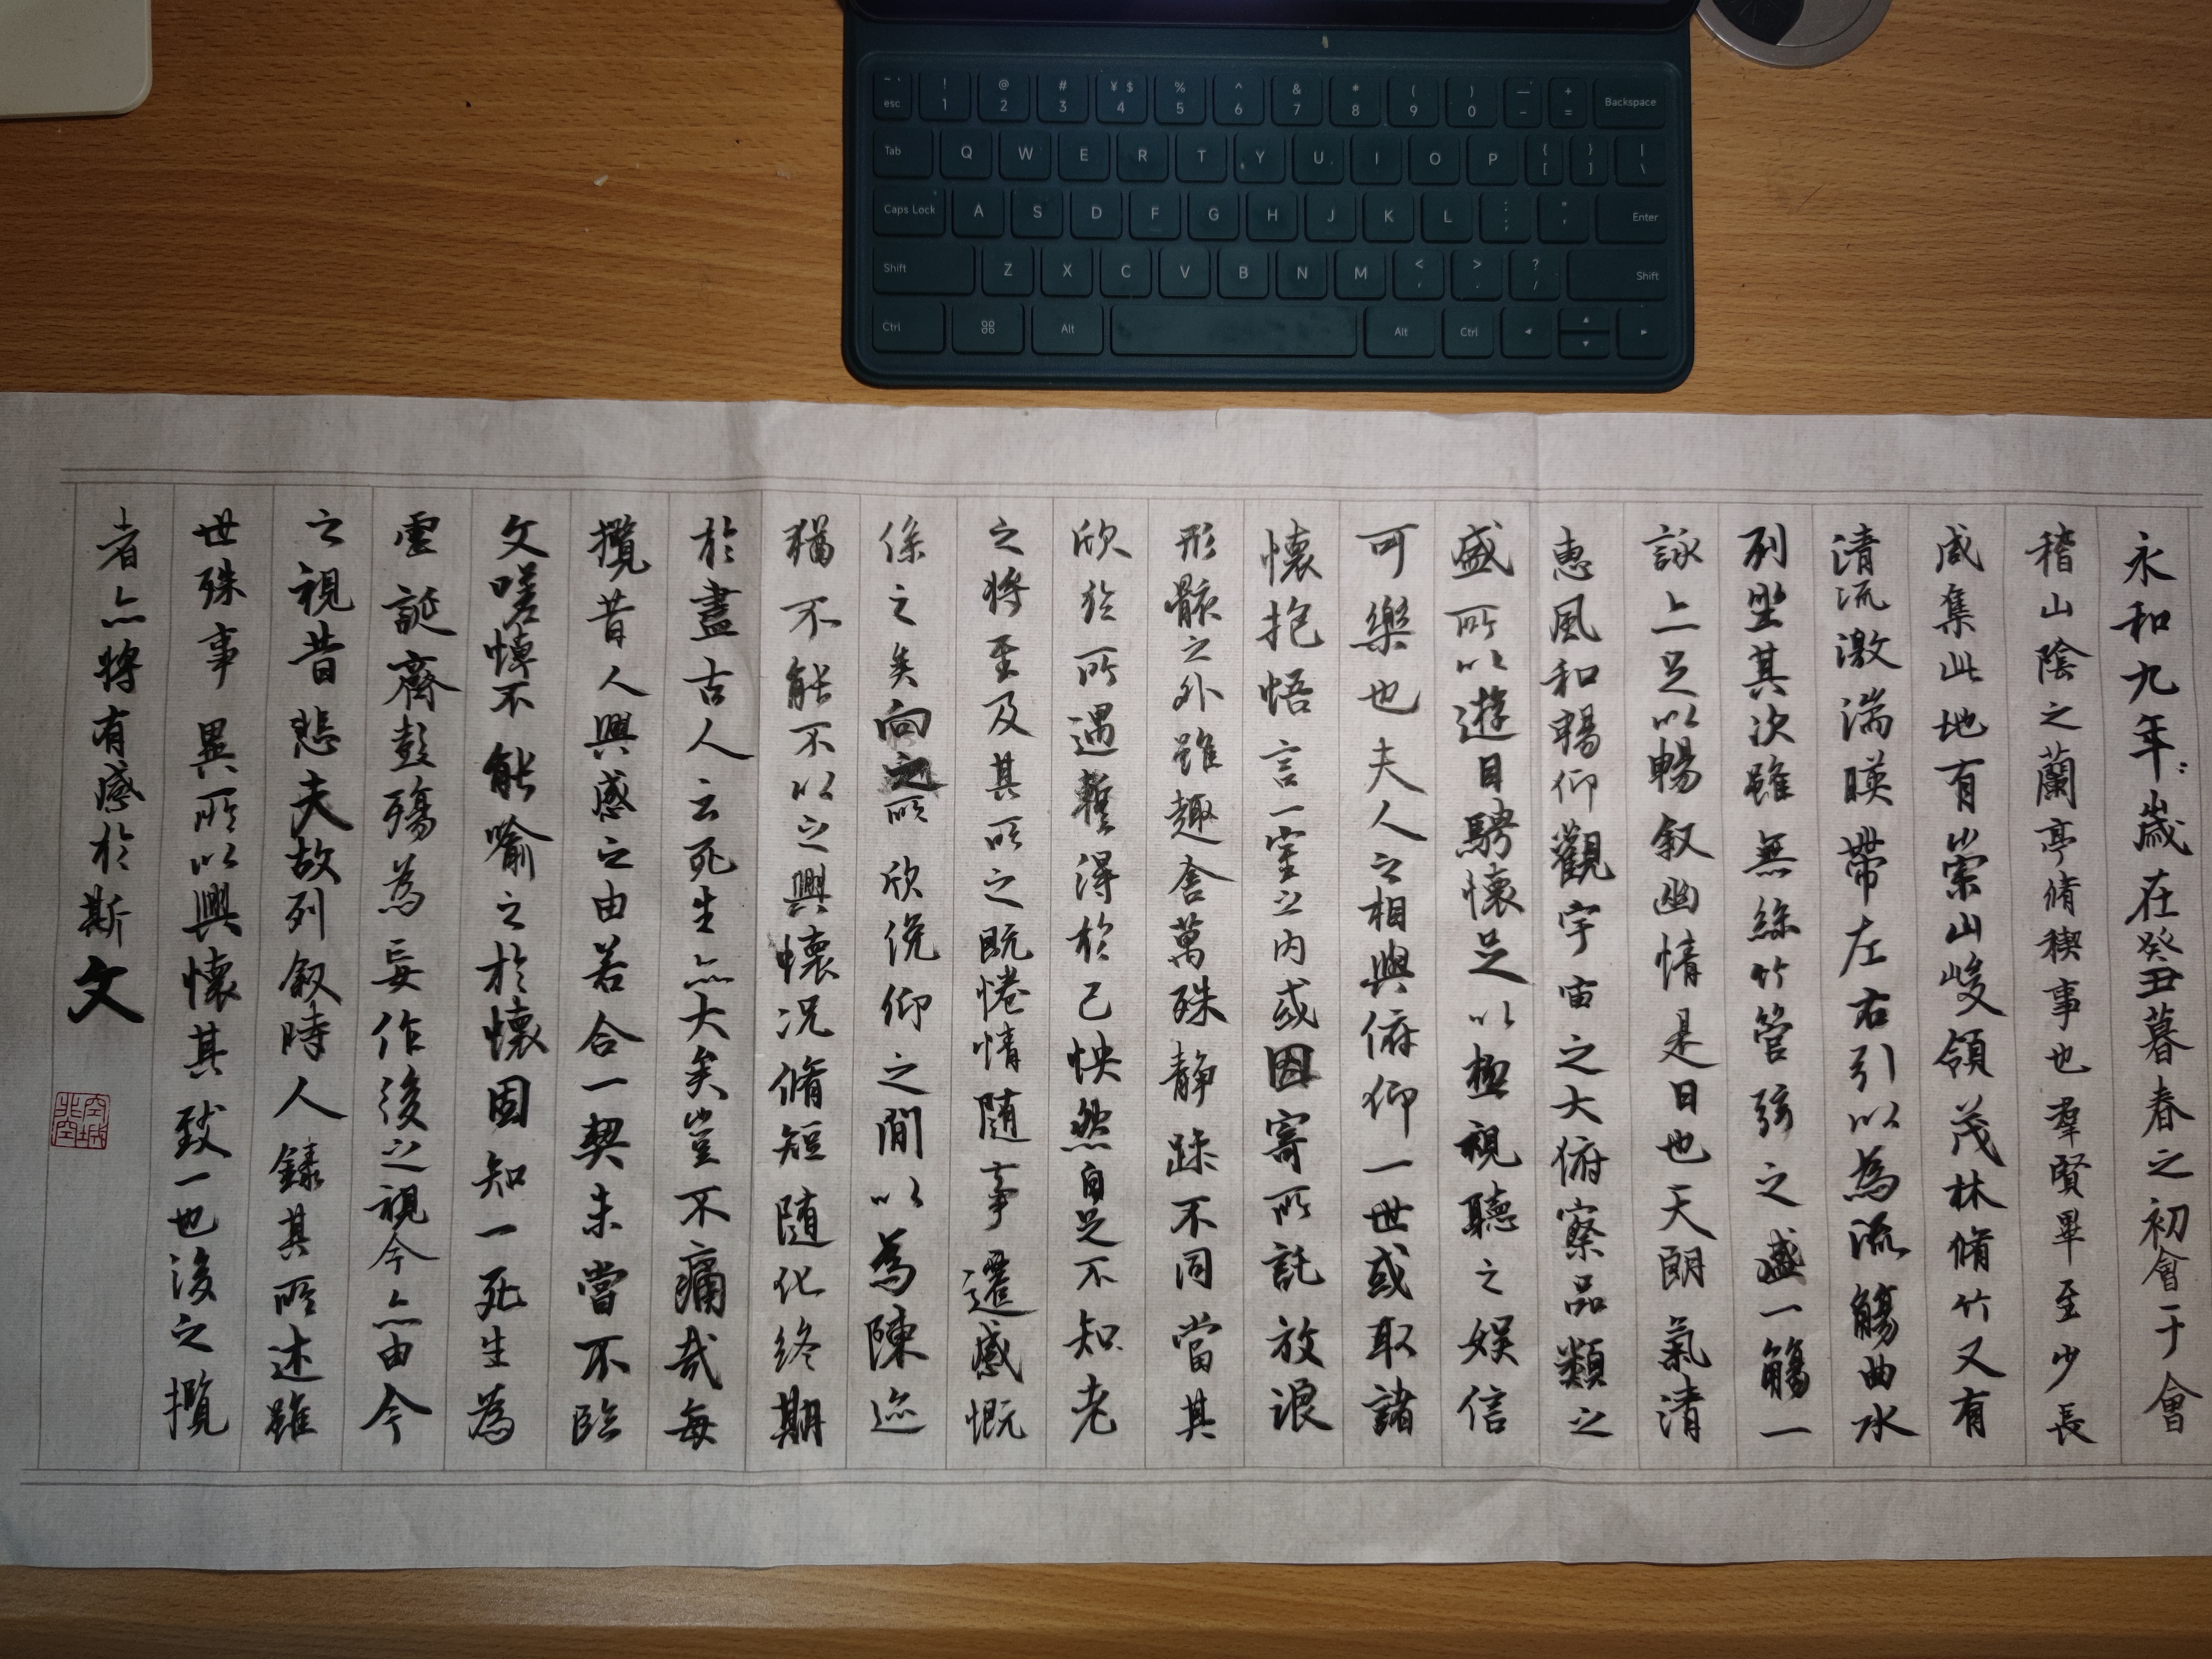 ~ `
esc
! 1
@ 2
# 3
¥ $ 4
% 5
^ 6
& 7
* 8
( 9
) 0
— -
+ =
Backspace
Tab Q W E R T Y U I O P { [ } ] | \
Caps Lock A S D F G H J K L : ; " ' Enter
Shift Z X C V B N M < , > . ? / Shift
Ctrl ⌘ Alt Alt Ctrl
永和九年歲在癸丑暮春之初會于會
稽山陰之蘭亭脩稧事也羣賢畢至少長
咸集此地有崇山峻領茂林脩竹又有
清流激湍暎帶左右引以為流觴曲水
列坐其次雖無絲竹管弦之盛一觴一
詠上足以暢叙幽情是日也天朗氣清
惠風和暢仰觀宇宙之大俯察品類之
盛所以遊目騁懷足以極視聽之娛信
可樂也夫人之相與俯仰一世或取諸
懷抱悟言一室之内或因寄所託放浪
形骸之外雖趣舍萬殊静躁不同當其
欣於所遇蹔得於己怏然自足不知老
之將至及其所之既惓情随事遷感慨
係之矣向之所欣俛仰之間以為陳迹
猶不能不以之興懷况脩短随化終期
於盡古人云死生亦大矣豈不痛哉每
攬昔人興感之由若合一契未嘗不臨
文嗟悼不能喻之於懷固知一死生為
虛誕齊彭殤為妄作後之視今亦由今
之視昔悲夫故列叙時人錄其所述雖
世殊事異所以興懷其致一也後之攬
者亦將有感於斯文